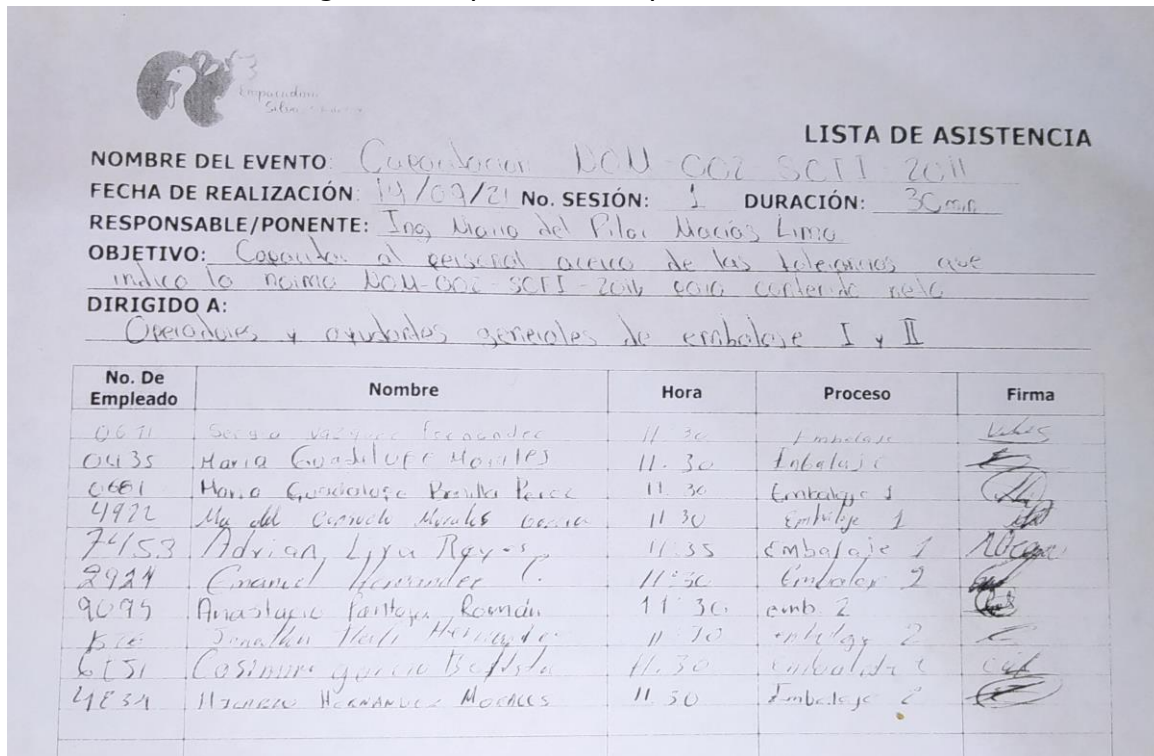 Empacadora
Silva
LISTA DE ASISTENCIA
NOMBRE DEL EVENTO: Capacitacion NOM-002-SCFI-2011
FECHA DE REALIZACIÓN: 14/09/21 No. SESIÓN: 1 DURACIÓN: 30 min
RESPONSABLE/PONENTE: Ing Maria del Pilar Macías Lima
OBJETIVO: Capacitar al personal acerca de las tolerancias que
indica la norma NOM-002-SCFI-2011 para contenido neto
DIRIGIDO A:
Operadores y ayudantes generales de embalaje I y II
No. De Empleado Nombre Hora Proceso Firma
Sergio 11:30 Embalaje
0435 Maria Guadalupe Morales 11:30
0661 Maria Guadalupe Perez 11:30 Embalaje 1
4922 Ma del Morales 11:30 Embalaje 1
7453 Adrian Reyes 11:35 Embalaje 1
2924 Emanuel Hernandez 11:30 2
9095 Anastacio Román 11:30 emb. 2
Jonathan 11:30 2
Casimiro garcia 11:30
HERNANDEZ MORALES 11:30 Embalaje 2